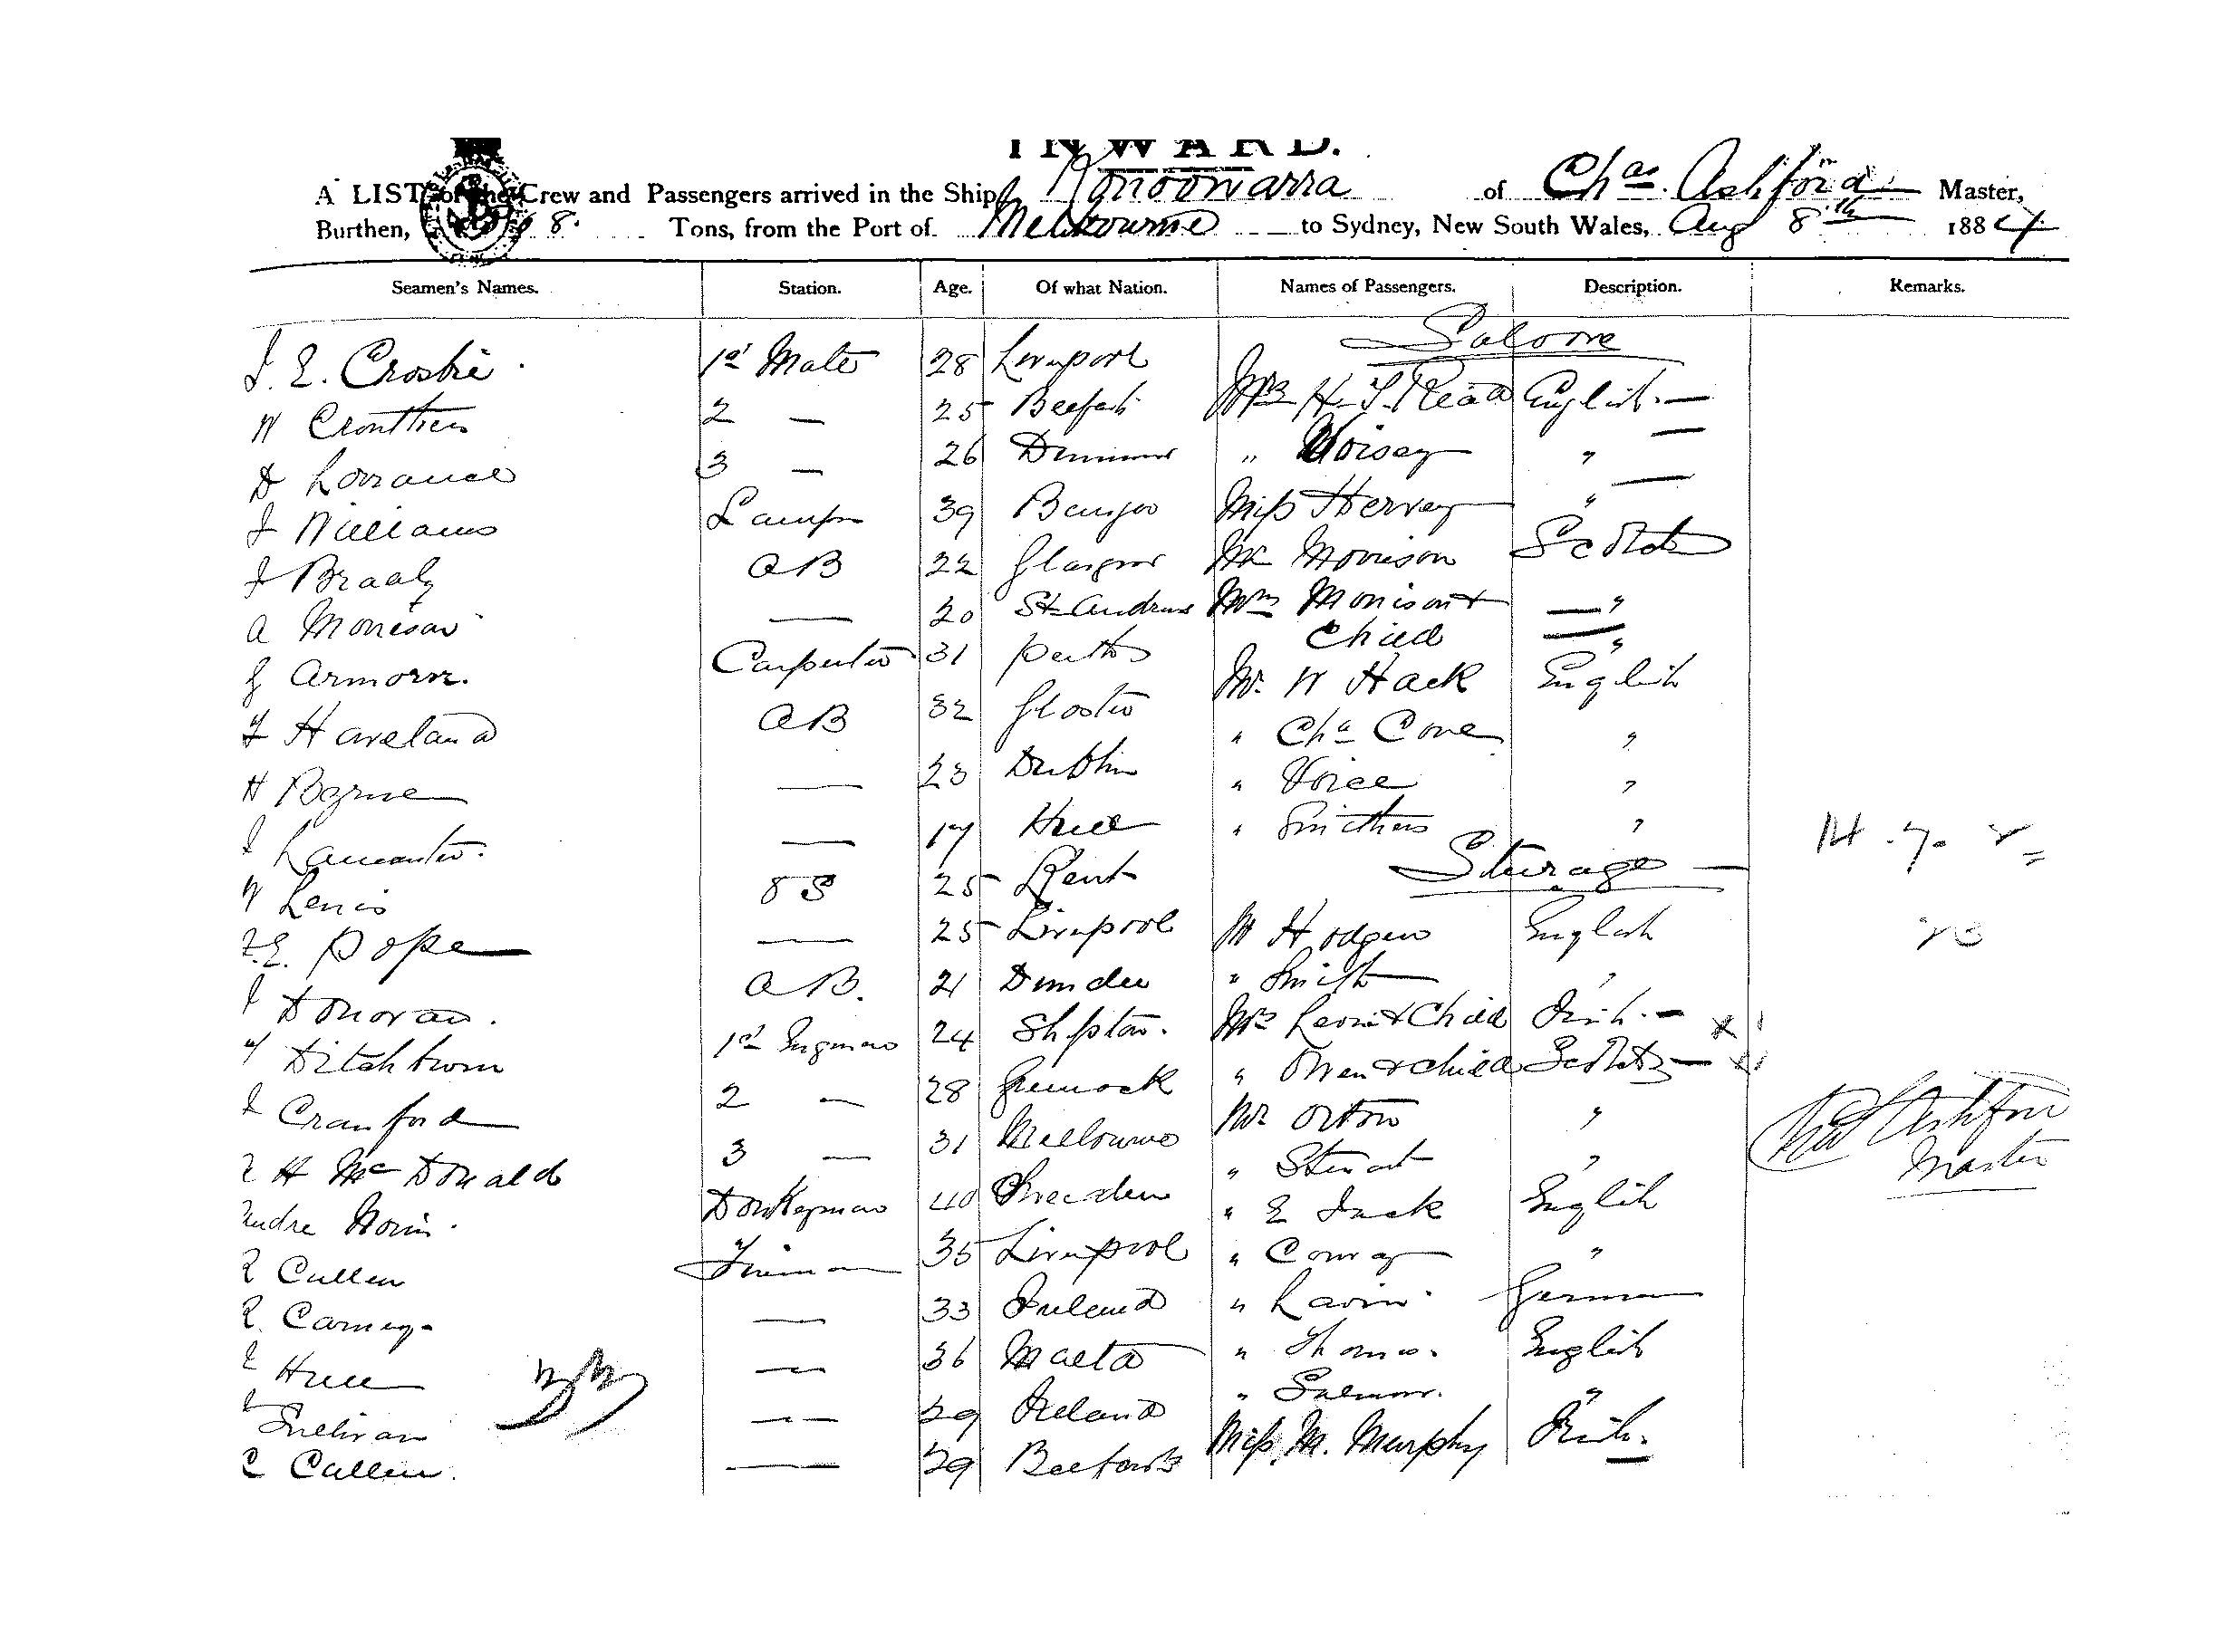 INWARD.
A LIST of the Crew and Passengers arrived in the Ship Konoowarra of Chas. Ashford Master,
Burthen, 8. Tons, from the Port of Melbourne to Sydney, New South Wales, Aug 8th 1884
Seamen's Names. Station. Age. Of what Nation. Names of Passengers. Description. Remarks.
Saloon
J. E. Crosbie. 1st Mate 28 Liverpool
W Crouthers 2 — 25 Belfast Mrs H. T. Read English. —
D Lorrance 3 — 26 " Voisey " —
J Williams Lamps 39 Bangor Miss Hervey " —
J Brady AB 22 Glasgow Mr Morrison Scotch
A Morrison — 20 St Andrews Mrs Morrison + — "
Child — "
Carpenter 31 Perth Mr. W Hack English
Haveland AB 32 Gloster " Chas Cone "
H Byrne — 23 Dublin " Voice "
Lancaster. — 17 Hull " Smithers "
Steerage —
W Lewis 25 Kent
Pope — 25 Liverpool Mr Hodgen English
J Donovan. AB. 21 Dundee " Smith "
Ditchburn 1st Engineer 24 Shipton. Mrs Levin + Child Irish. — x 1
J Crawford 2 — 28 Greenock " Owen + child Scotch — x 1
H McDonald 3 — 31 Melbourne Mr Orton "
Andre Donkeyman 40 Sweeden " Stewart "
" E Jack English
Cullen Fireman 35 Liverpool " Conroy "
R. Carney. — 33 Ireland " Lavin. German
Hull — 36 Malta " Thomas. English
Sullivan — 29 Ireland " Salmon. "
C Cullen. — 29 Belfast Miss M. Murphy Irish.
Chas Ashford
Master